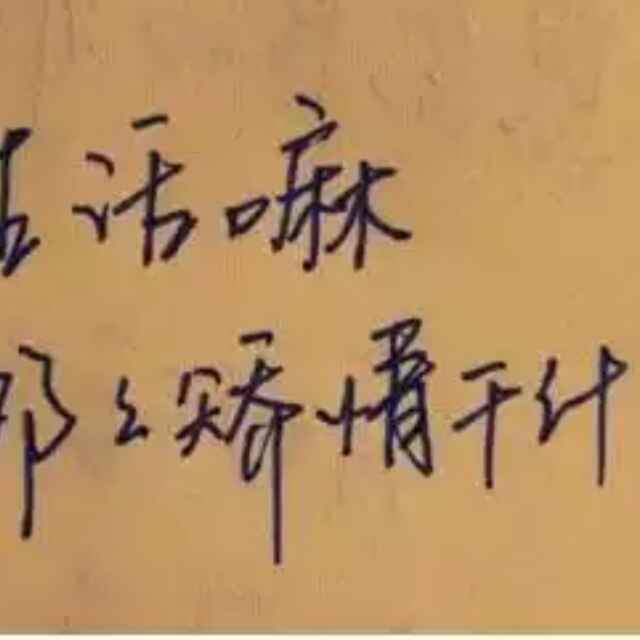 生活嘛
那么矫情干什